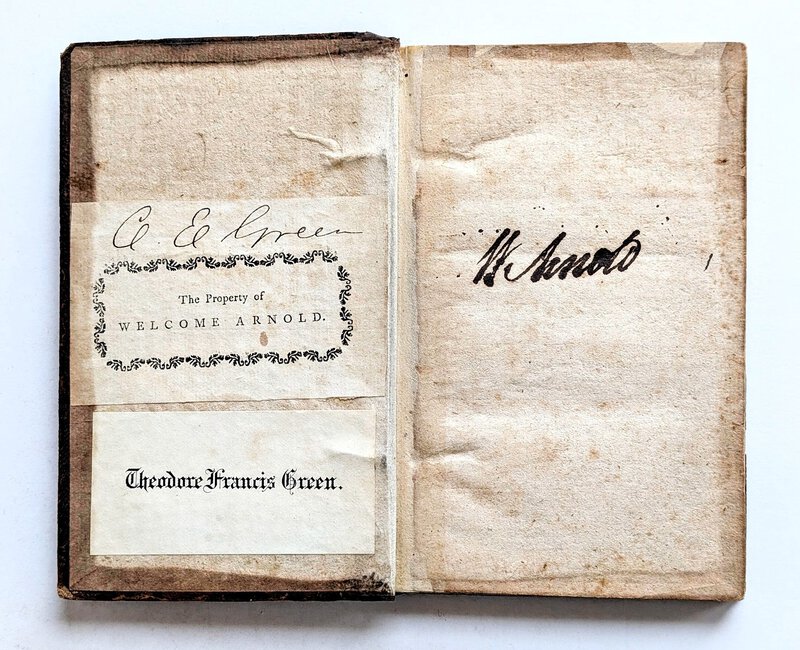 C. E Green
The Property of
WELCOME ARNOLD.
Theodore Francis Green.
W Arnold